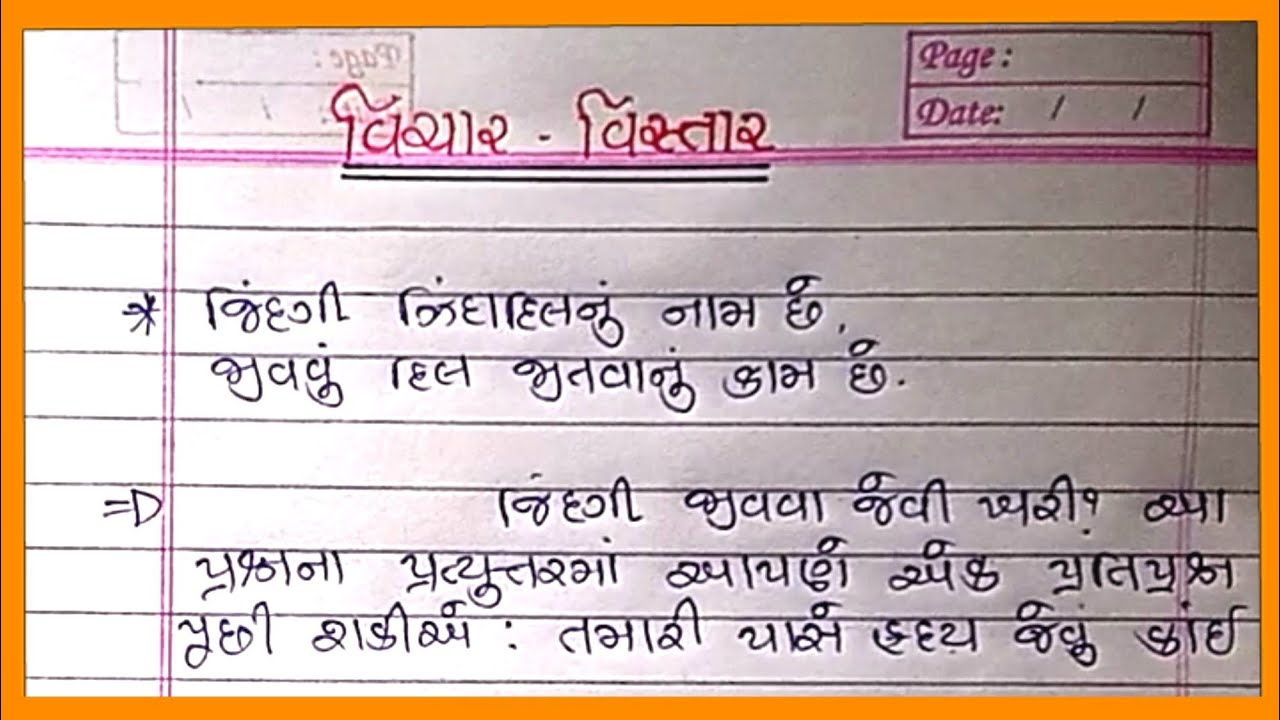 Page :
Date: / /
વિચાર - વિસ્તાર
* જિંદગી ઝિંદાદિલનું નામ છે,
જીવવું દિલ જીતવાનું કામ છે.
⇒ જિંદગી જીવવા જેવી ખરી? આ
પ્રશ્નના પ્રત્યુત્તરમાં આપણે એક પ્રતિપ્રશ્ન
પૂછી શકીએ : તમારી પાસે હૃદય જેવું કાંઈ